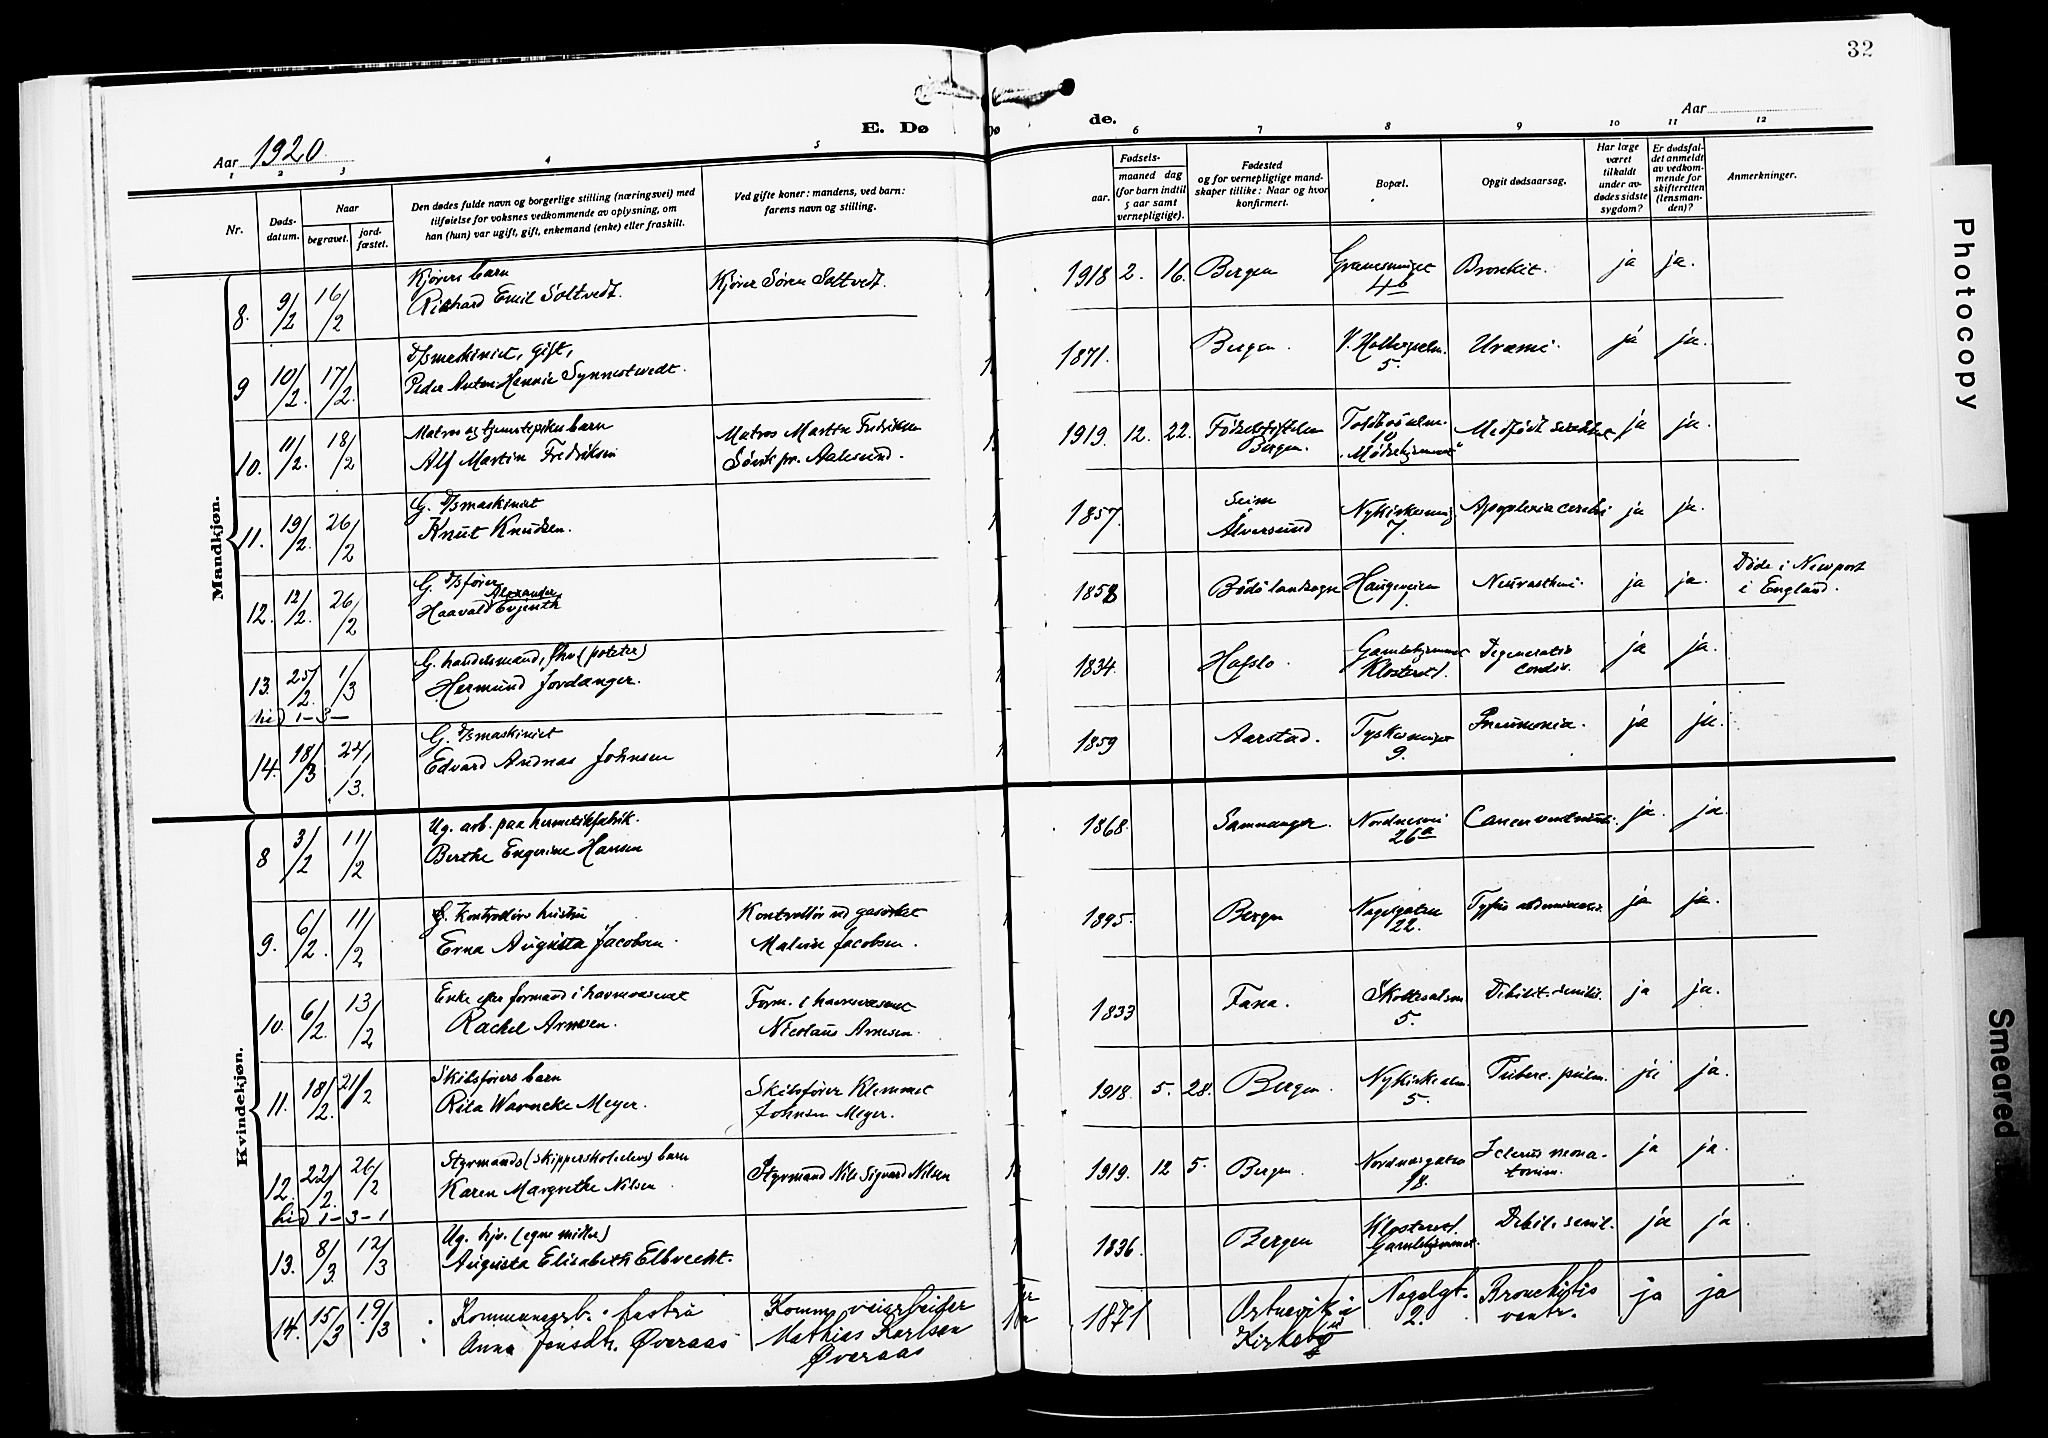 32
E. Dø
de.
Aar 1920
Aar
1 2 3 4 5 6 7 8 9 10 11 12
Nr.
Døds-
datum.
Naar
begravet.
jord-
fæstet.
Den dødes fulde navn og borgerlige stilling (næringsvei) med
tilføielse for voksnes vedkommende av oplysning, om
han (hun) var ugift, gift, enkemand (enke) eller fraskilt.
Ved gifte koner: mandens, ved barn:
farens navn og stilling.
aar.
Fødsels-
maaned dag
(for barn indtil
5 aar samt
vernepligtige).
Fødested
og for vernepligtige mand-
skaper tillike: Naar og hvor
konfirmert.
Bopæl.
Opgit dødsaarsag.
Har læge
været
tilkaldt
under av-
dødes sidste
sygdom?
Er dødsfal-
det anmeldt
av vedkom-
mende for
skifteretten
(lensman-
den)?
Anmerkninger.
Mandkjøn.
8. 9/2 16/2
Kjørers barn
Richard Emil Soltvedt.
Kjører Sören Soltvedt.
1918 2. 16. Bergen
4b
Bronkit. ja ja.
9 10/2. 17/2.
D/smaskinist, gift,
Peder Anton Hennie Synnestvedt.
1871. Bergen.
5.
Uræmi. ja ja.
10. 11/2. 18/2
Matros og tjenestepikes barn
Alf Martin Fredriksen
Matros Martin Fredriksen
Sövik pr. Aalesund.
1919. 12. 22. Fødselsstiftelsen
Bergen.
Toldbodalm.
10
"Mødrehjemmet"
Medfödt svakhet ja ja.
11. 19/2. 26/2
G. D/smaskinist
Knut Knudsen.
1857. Seim
Alversund
Nykirkesmug
7.
Apoplexia cerebri ja ja.
12. 12/2. 26/2
G. D/sfører
Alexander
Haavald Evjenth
1858 Bodö landsogn Haugeveien
7.
Neurasthni. ja ja.
Døde i Newport
i England.
13. 25/2. 1/3
G. handelsmand, fhv. (poteter)
Hermund Jordanger.
1834. Hafslo. Gamlehjemmet
Klosteret.
Degeneratio
cordis. ja ja.
hid 1-3-
14. 18/3 24/3.
G. D/smaskinist
Edvard Andreas Johnsen
1859 Aarstad. Tyskesmuget
9.
Pneumonia. ja ja.
Kvindekjøn.
8 3/2 11/2
Ug. arb. paa hermetikfabrik.
Berthe Engerine Hansen
1868. Samnanger. Nordnesvei
26a
Cancer ventriculi. ja. ja.
9. 6/2. 11/2
G. Kontrollørs hustru
Erna Augusta Jacobsen.
Kontrollör ved gasverket
Malvin Jacobsen.
1895. Bergen Nagelgaten
22.
Tyfus abdominalis. ja ja.
10. 6/2. 13/2
Enke efter formand i havnevæsenet
Rachel Arnesen.
Form. i havnevæsenet
Nicolaus Arnesen.
1833 Fana. Skottesalm
5.
Debilit. senilis. ja ja.
11. 18/2. 21/2
Skibsførers barn
Rita Warncke Meyer.
Skibsfører Klemmet
Johnsen Meyer.
1918. 5. 28. Bergen. Nykirkealm.
5.
Tuberc. pulm. ja ja.
12. 22/2. 26/2
Styrmands (skipperskoleelevs) barn
Karen Margrethe Nilsen
Styrmand Nils Sigvard Nilsen
1919. 12 5. Bergen. Nordnesgaten
18.
Icterus neona-
torum. ja ja.
hid 1-3-1
13. 8/3. 12/3
Ug. hjv. (egne midler)
Augusta Elisabeth Elbrecht.
1836. Bergen Klosteret.
Gamlehjemmet.
Debil. senil. ja ja.
14. 15/3 19/3
Kommunearb. hustru
Anna Jensdtr. Øveraas
Komm. veiarbeider
Mathias Karlsen
Øveraas
1871 Ortnevik i
Kirkebø
Nagelgt.
2.
Bronchitis
ventr. ja ja
Photocopy
Smeared